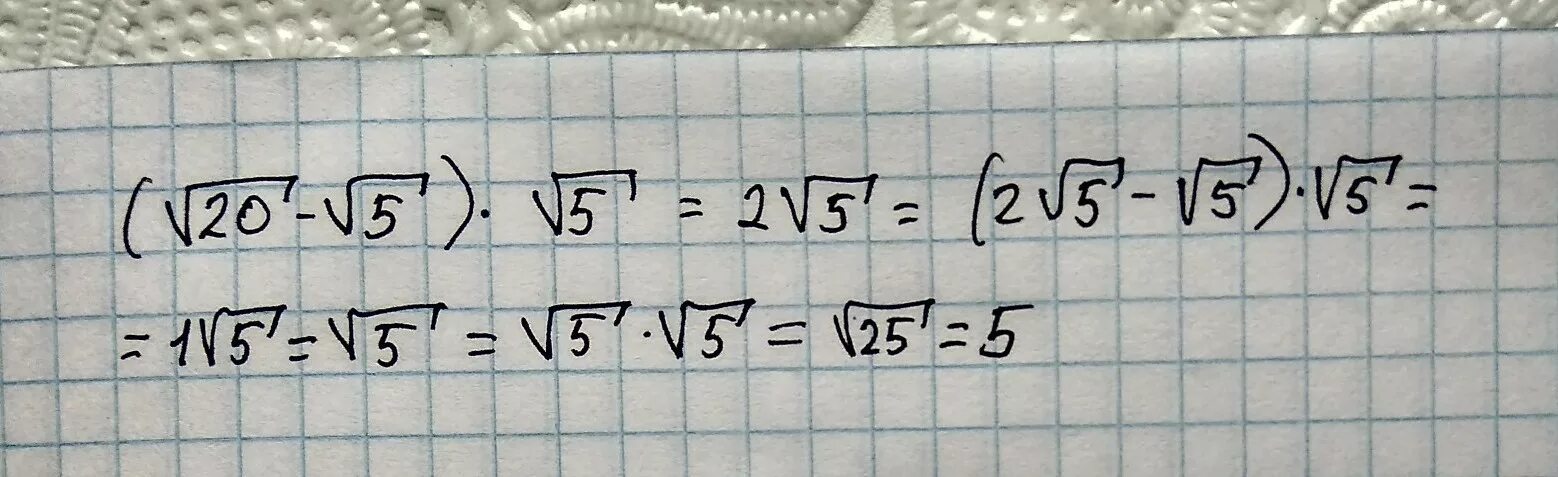 (√20 - √5) · √5 = 2√5 = (2√5 - √5) · √5 =
= 1√5 = √5 = √5 · √5 = √25 = 5